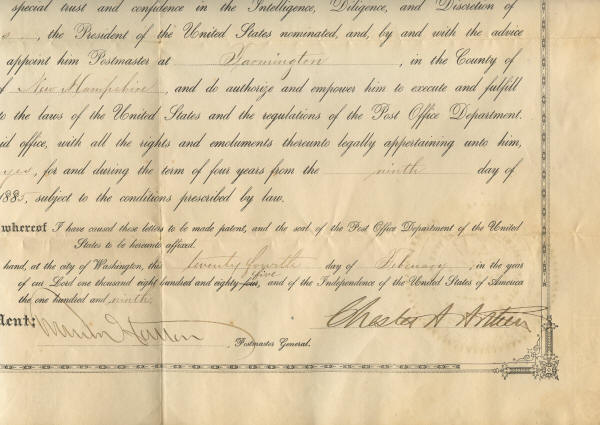 special trust and confidence in the Intelligence, Diligence, and Discretion of
s, the President of the United States nominated, and, by and with the advice
appoint him Postmaster at Farmington, in the County of
f New Hampshire, and do authorize and empower him to execute and fulfill
to the laws of the United States and the regulations of the Post Office Department.
id office, with all the rights and emoluments thereunto legally appertaining unto him,
for and during the term of four years from the ninth day of
1885, subject to the conditions prescribed by law.
whereof I have caused these letters to be made patent, and the seal of the Post Office Department of the United
States to be hereunto affixed.
hand, at the city of Washington, this twenty fourth day of February, in the year
of our Lord one thousand eight hundred and eighty-four five, and of the Independence of the United States of America
the one hundred and ninth.
dent: Chester A Arthur
, Postmaster General.